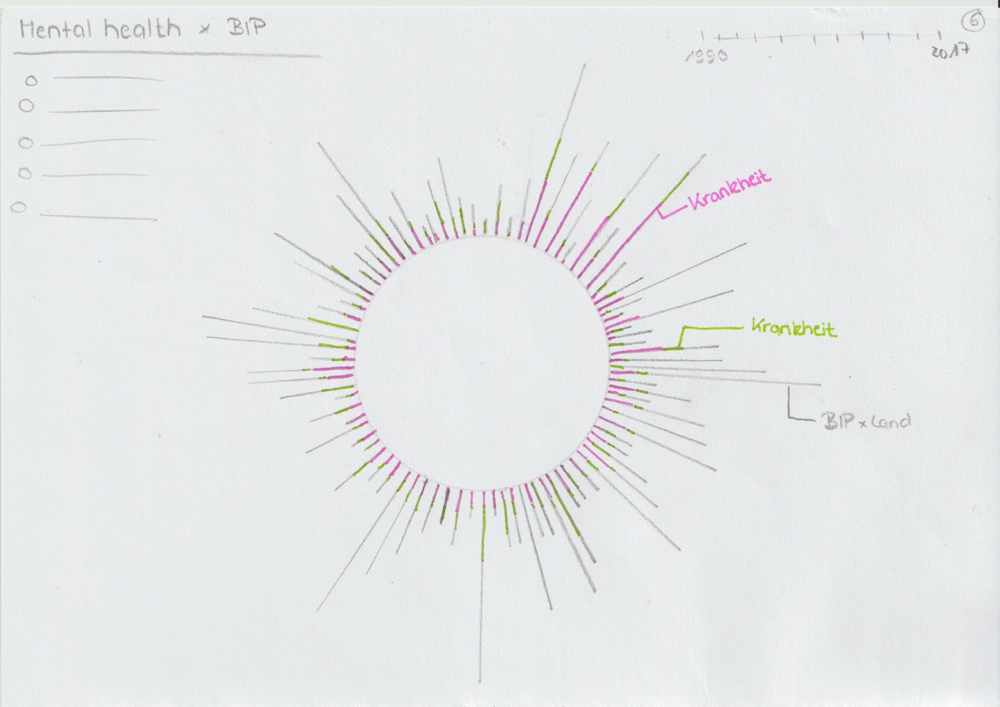 Mental health x BIP
6
1990
2017
Krankheit
Krankheit
BIP x Land